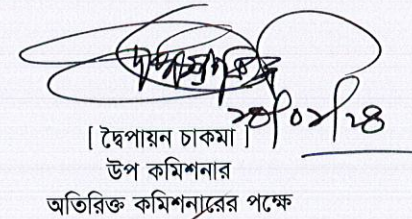 ২৪/০২/২৪
[ দ্বৈপায়ন চাকমা ]
উপ কমিশনার
অতিরিক্ত কমিশনারের পক্ষে